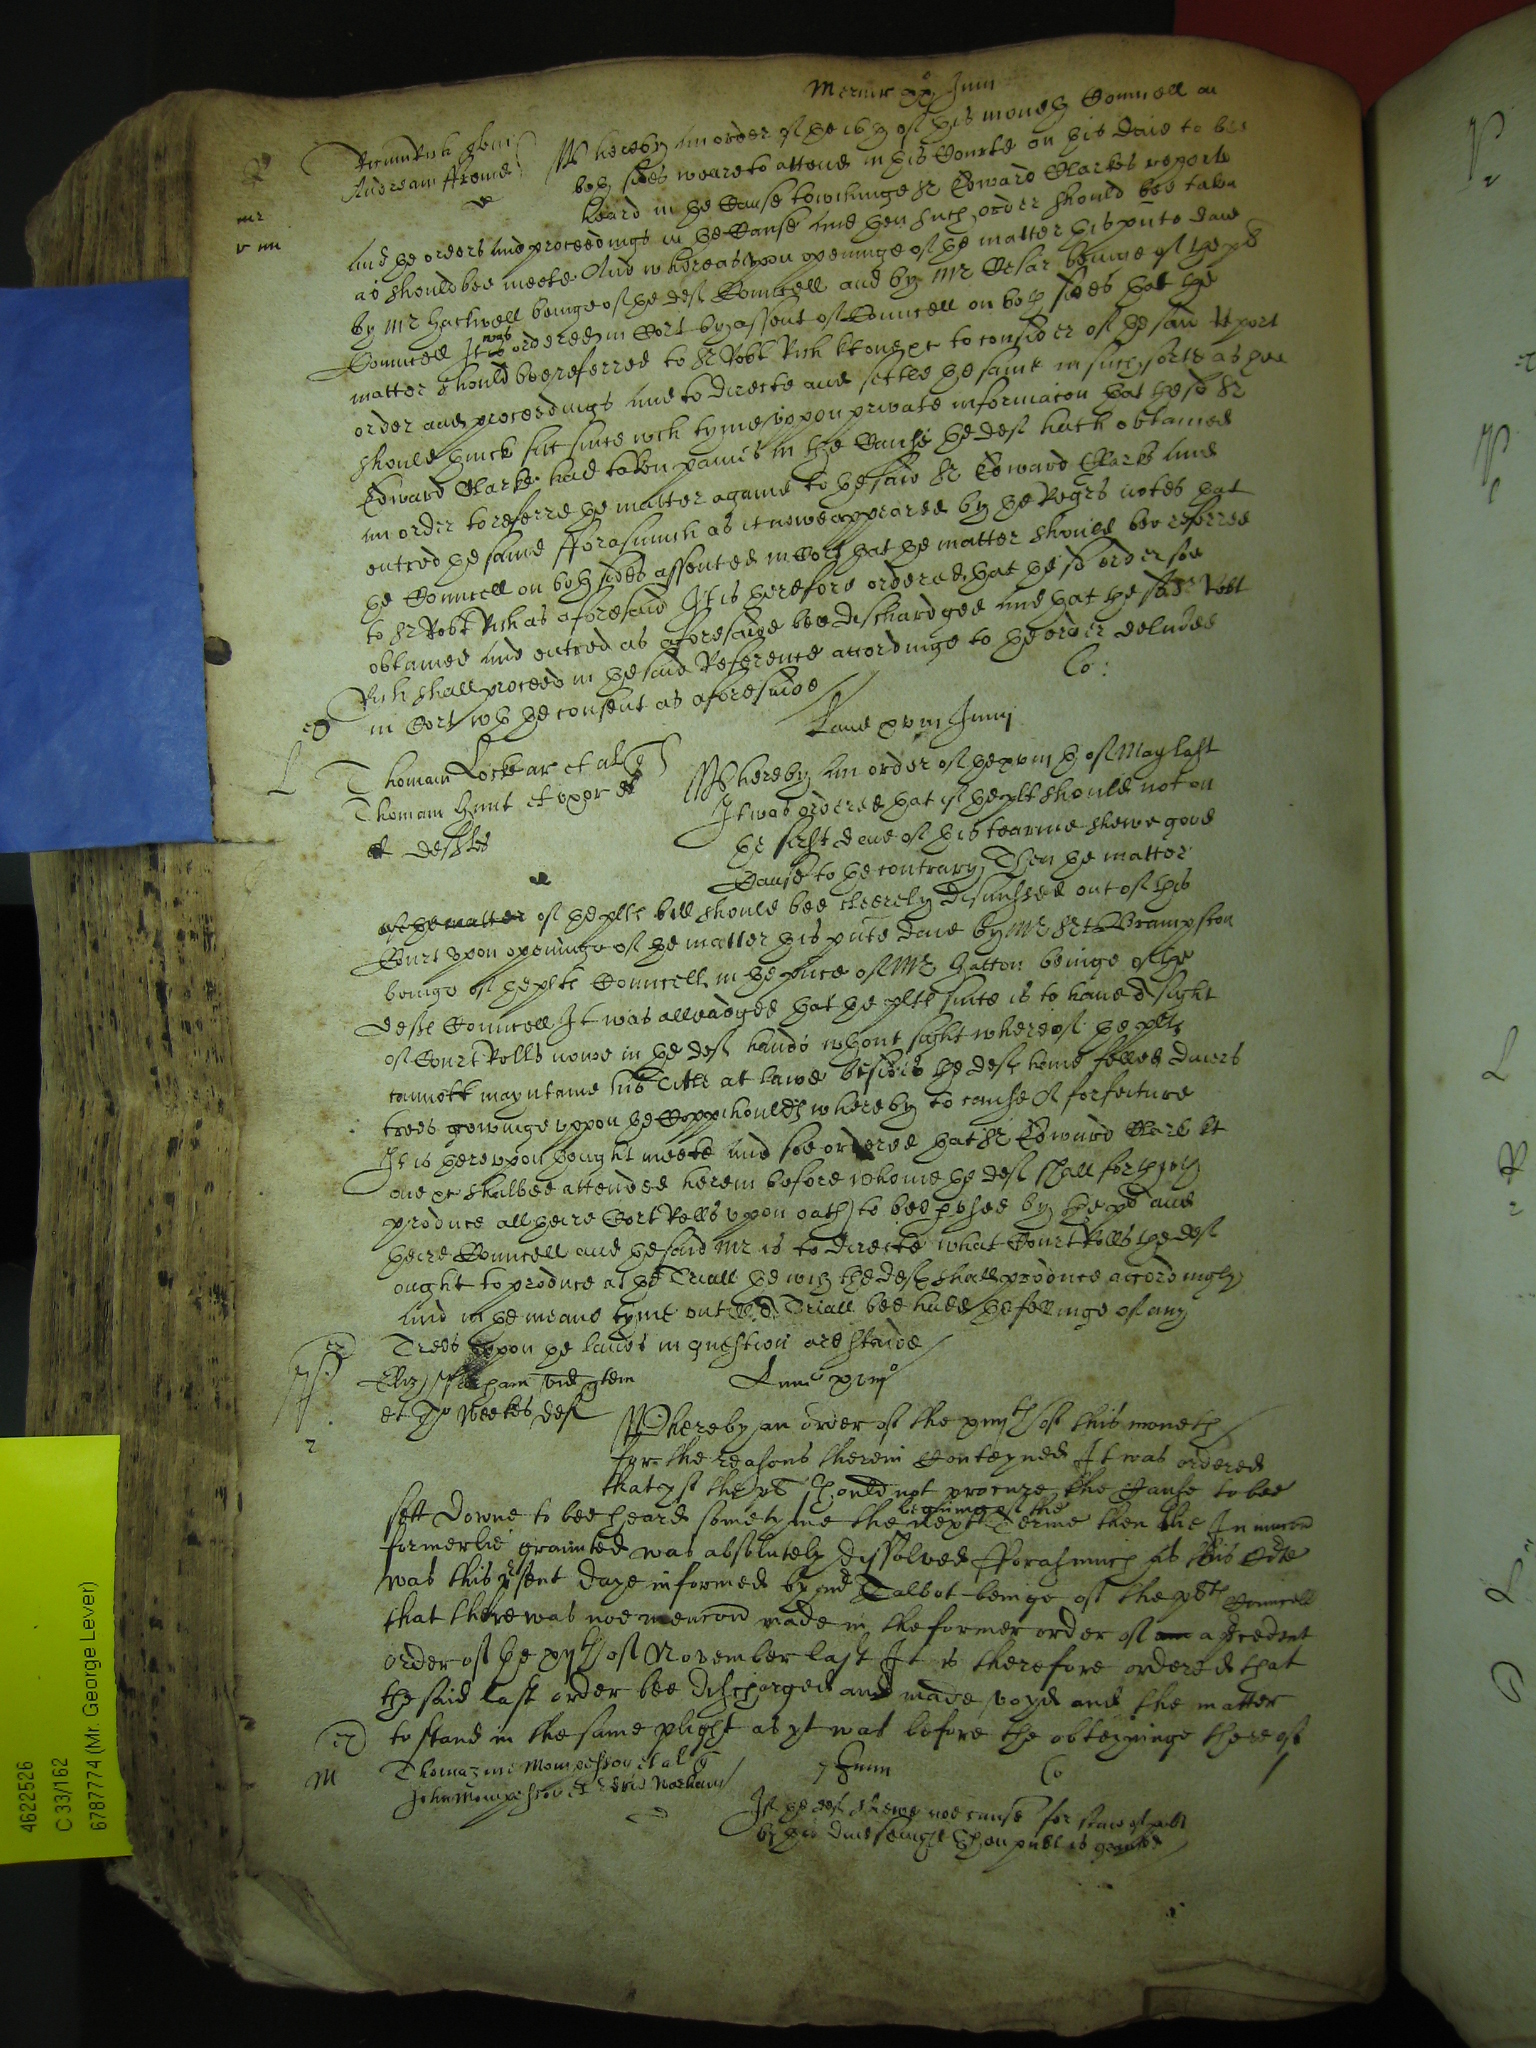 Mercur xx Junii
Andream
Whereby an order of the of this moneth Councell on
both sides weare to attend in this Courte on this daie to bee
heard in the Cause towchinge Sr Edward Clarkes reporte
and the orders and proceedings in the Cause And then such order should bee taken
as should bee meete And whereas upon openinge of the matter this pnte daie
by Mr Hackwell beinge of the def Councell and by Mr of the pl
Councell It was ordered in Cort by assent of Councell on both sides that the
matter should bee referred to Sr Robt Rich kt one &c to consider of the said report
order and proceedings and to directe and settle the same in such sorte as hee
should thinck fitt since wch tyme uppon private informacon that the sd Sr
Edward Clarke had taken paines in the Cause the def hath obtained
an order to referre the matter againe to the said Sr Edward Clarke and
entred the same fforasmuch as it nowe appeared by the Regrs notes that
the Councell on both sides assented in Cort that the matter should bee referred
to Sr Robt Rich as aforesaid It is therefore ordered that the sd order soe
obtained and entred as aforesaide bee dischardged and that the sd Sr Robt
Rich shall proceed in the said Reference accordinge to the order
in Cort wth the consent as aforesaide
Co:
Lune xviii Junii
L
Thomam Lockear et al
Thomam Hunt et uxor et
al deftes
Whereby an order of the xviiith of May last
It was ordered that if the plt should not on
the first daie of this tearme shewe good
Cause to the contrary Then the matter
of the matter of the plts bill should bee cleerely dismissed out of this
Court upon openinge of the matter this pnte daie by Mr Brampston
beinge of the plts Councell in the pnce of Mr Hatton beinge of the
defts Councell It was alleadged that the plts suite is to have A sight
of Court Rolls nowe in the def hands wthout sight whereof the plts
cannott mayntaine his title at lawe besides the def have felled divers
trees growinge uppon the Coppihoulds whereby to cause A forfeiture
It is thereupon thought meete and soe ordered that Sr Edward Clark kt
one &c shalbee attended herein before whome the def shall forthwth
produce all theire Cort Rolls uppon oath to bee pused by the pl and
theire Councell and the said Mr is to directe what Court Rolls the def
ought to produce at the Triall the wch the def shall produce accordingly
And in the meane tyme untill A Triall bee hadd the fellinge of any
Trees uppon the lands in question are staide
Eliz vid
et Weekes def
Lune xviii
Whereby an order of the xiiith of this moneth
for the reasons therein Conteyned It was ordered
that yf the pl should not procure the Cause to bee
sett downe to bee heard sometyme the beginninge of the next Terme then the Iniuncon
formerlie graunted was absolutely dissolved fforasmuch as this Corte
was this psent daye informed by mr Talbot beinge of the plts Councell
that there was noe mencon made in the former order of an a precedent
order of the of November last It is therefore ordered that
the said last order bee discharged and made voyd and the matter
to stand in the same plight as yt was before the obteyninge thereof
M
Thomazine Mompesson et al
John Mompesson et
Junii
Co
If the def shewe noe cause for staie of publ
by this daie sevnight Then publ is graunted
4622526
C 33/162
6787774 (Mr. George Lever)